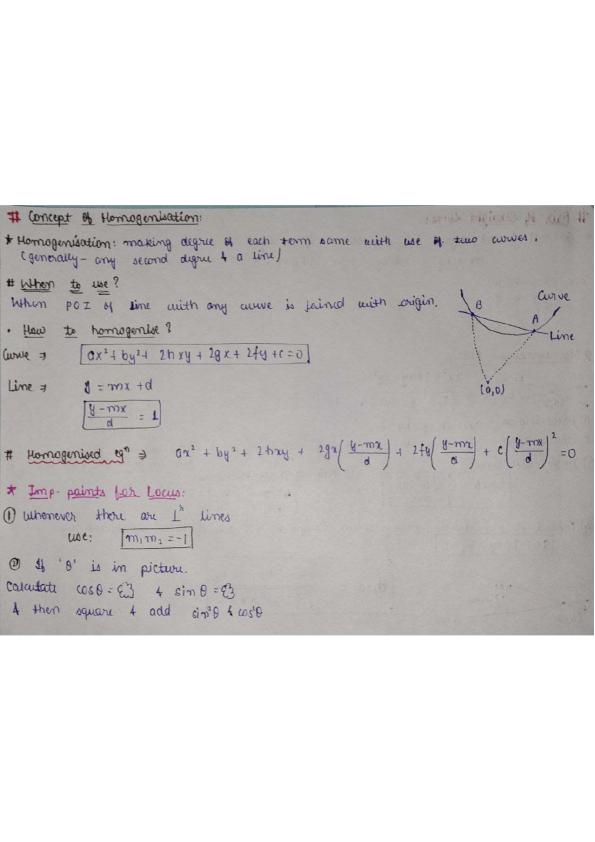 # Concept of Homogenisation:
* Homogenisation: making degree of each term same with use of two curves.
(generally - any second degree & a line)
# When to use?
When POI of line with any curve is joined with origin.
B
A
Curve
Line
(0,0)
• How to homogenise?
Curve ⇒ ax² + by² + 2hxy + 2gx + 2fy + c = 0
Line ⇒ y = mx + d
(y - mx)/d = 1
# Homogenised eqⁿ ⇒ ax² + by² + 2hxy + 2gx((y-mx)/d) + 2fy((y-mx)/d) + c((y-mx)/d)² = 0
* Imp. points for Locus:
① Whenever there are ⊥ʳ lines
use: m₁m₂ = -1
② If 'θ' is in picture.
Calculate cosθ = {} & sinθ = {}
& then square & add sin²θ & cos²θ